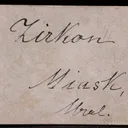 Zirkon
Miask,
Ural.